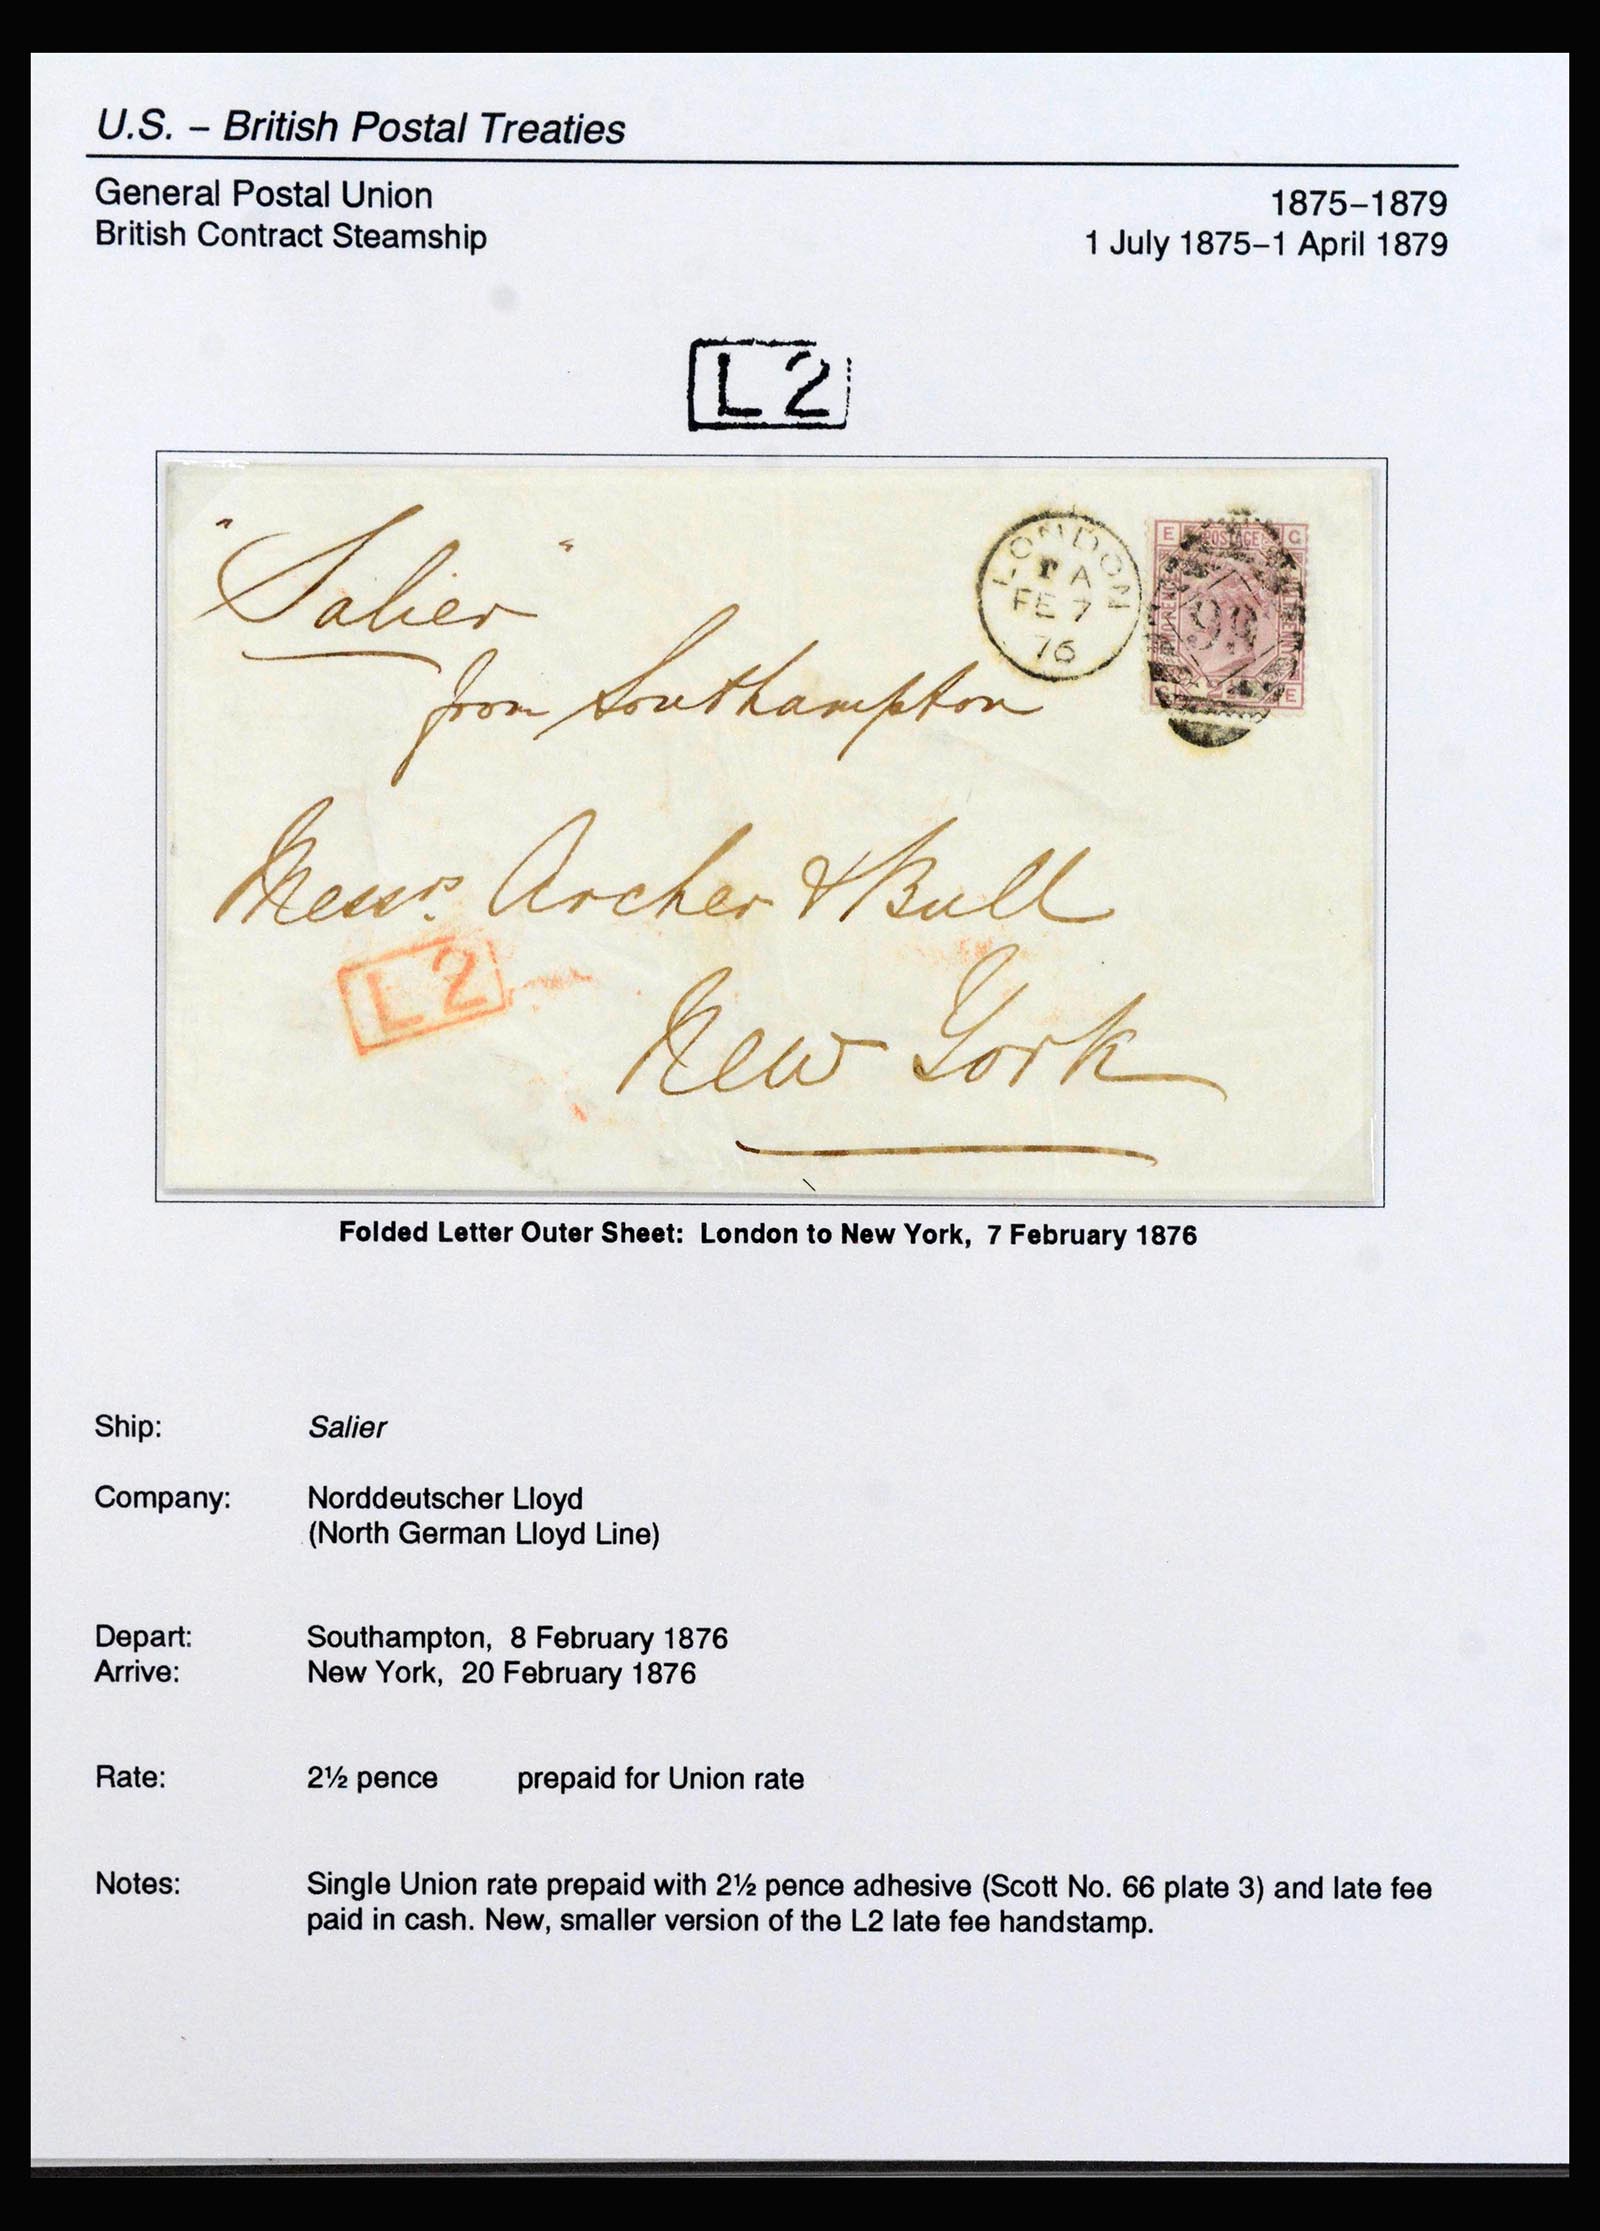 U.S. – British Postal Treaties
General Postal Union
1875–1879
British Contract Steamship
1 July 1875–1 April 1879
L2
"Salier"
from Southampton
LONDON
A
FE 7
76
E POSTAGE G
E
Messrs. Archer & Bull
L2
New York
Folded Letter Outer Sheet: London to New York, 7 February 1876
Ship: Salier
Company: Norddeutscher Lloyd
(North German Lloyd Line)
Depart: Southampton, 8 February 1876
Arrive: New York, 20 February 1876
Rate: 2½ pence prepaid for Union rate
Notes: Single Union rate prepaid with 2½ pence adhesive (Scott No. 66 plate 3) and late fee
paid in cash. New, smaller version of the L2 late fee handstamp.